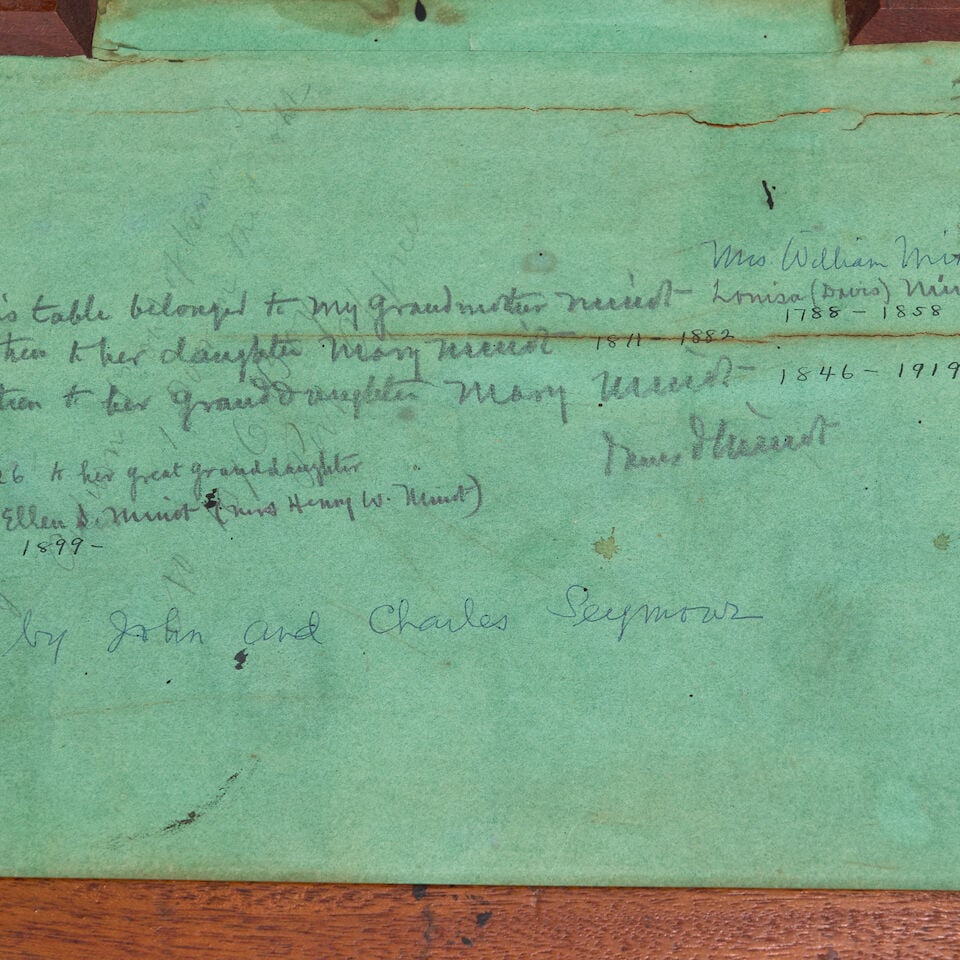 Mrs William Min
is table belonged to my Grandmother Minot Louisa (Davis) Min
1788 - 1858
then to her daughter Mary Minot 1811 - 1882
then to her Granddaughter Mary Minot 1846 - 1919
26 to her great granddaughter
Ellen D. Minot (Mrs Henry W. Minot)
1899-
by John and Charles Seymour